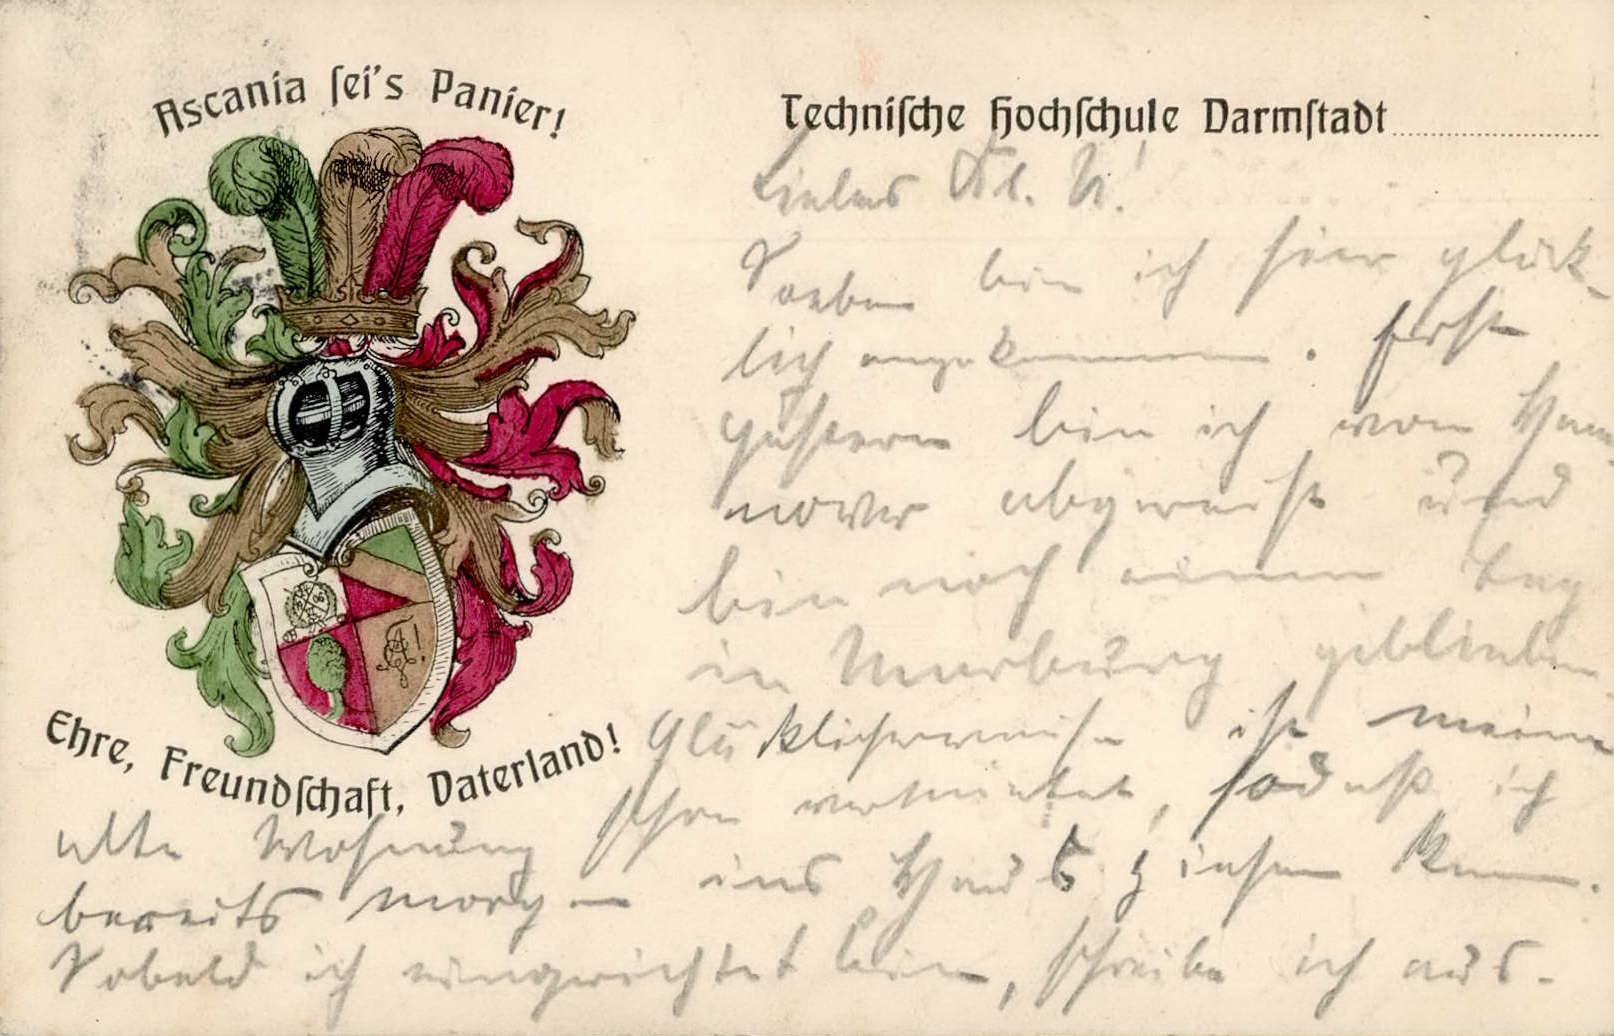 Ascania sei's Panier!
Technische Hochschule Darmstadt
Ehre, Freundschaft, Vaterland!
Liebes
Soeben bin ich hier glück-
lich angekommen. Erst
gestern bin ich von Han-
nover abgereist und
bin noch einen Tag
in Marburg geblieben.
Glücklicherweise ist meine
alte Wohnung schon vermietet, sodaß ich
bereits morgen ins Haus ziehen kann.
Sobald ich eingerichtet bin, schreibe ich aus-